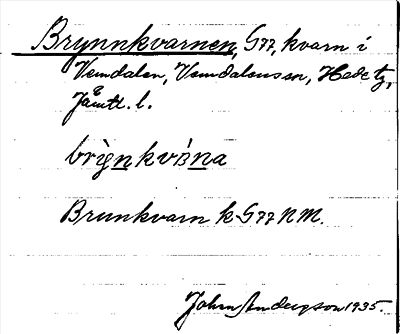 Brynnkvarnen, G77, kvarn i
Vemdalen, Vemdalens sn, Hede tg,
Jämtl. l.
brı̀e̲n̲kvȧn̲a
Brunkvarn k G77 NM.
John Andersson 1935.